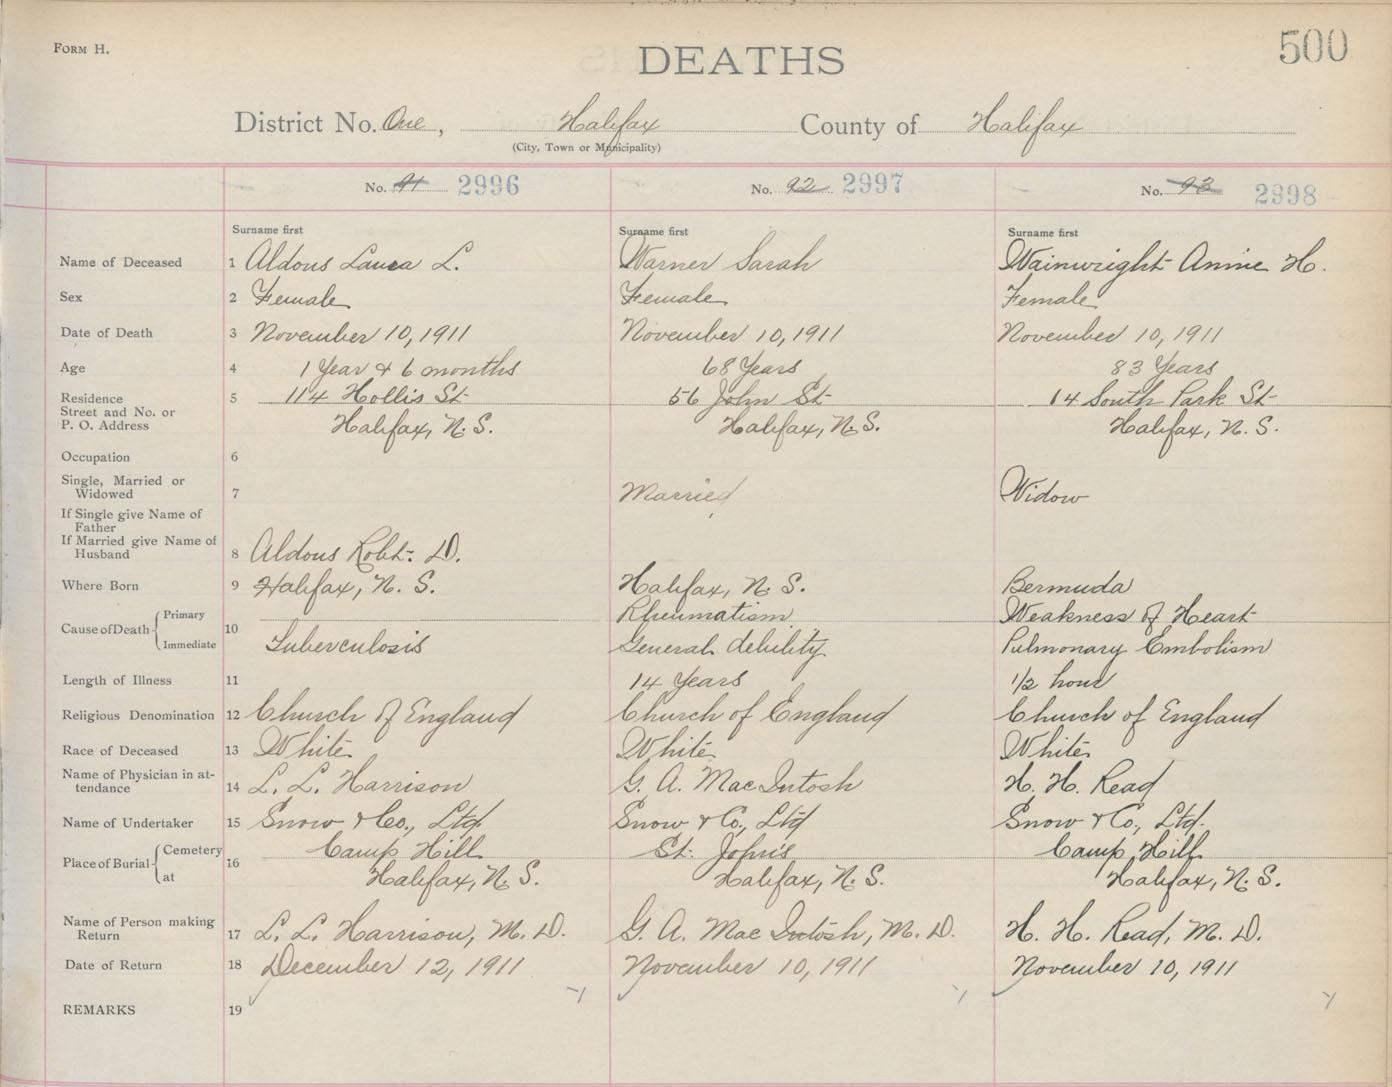 FORM H.
500
DEATHS
District No. One, Halifax County of Halifax
(City, Town or Municipality)
No. 91 2996
No. 92 2997
No. 93 2998
Surname first Surname first Surname first
Name of Deceased 1 Aldous Laura L. Warner Sarah Wainwright Annie H.
Sex 2 Female Female Female
Date of Death 3 November 10, 1911 November 10, 1911 November 10, 1911
Age 4 1 Year & 6 months 68 Years 83 Years
Residence 5 114 Hollis St 56 John St 14 South Park St
Street and No. or
P. O. Address Halifax, N. S. Halifax, N. S. Halifax, N. S.
Occupation 6
Single, Married or
Widowed 7 Married Widow
If Single give Name of
Father
If Married give Name of
Husband 8 Aldous Robt. D.
Where Born 9 Halifax, N. S. Halifax, N. S. Bermuda
Cause of Death 10 Primary Rheumatism Weakness of Heart
Immediate Tuberculosis General debility Pulmonary Embolism
Length of Illness 11 14 Years 1/2 hour
Religious Denomination 12 Church of England Church of England Church of England
Race of Deceased 13 White White White
Name of Physician in at-
tendance 14 L. L. Harrison G. A. MacIntosh H. H. Read
Name of Undertaker 15 Snow & Co., Ltd Snow & Co., Ltd Snow & Co., Ltd.
Place of Burial 16 Cemetery Camp Hill St. John's Camp Hill
at Halifax, N. S. Halifax, N. S. Halifax, N. S.
Name of Person making
Return 17 L. L. Harrison, M. D. G. A. MacIntosh, M. D. H. H. Read, M. D.
Date of Return 18 December 12, 1911 November 10, 1911 November 10, 1911
REMARKS 19